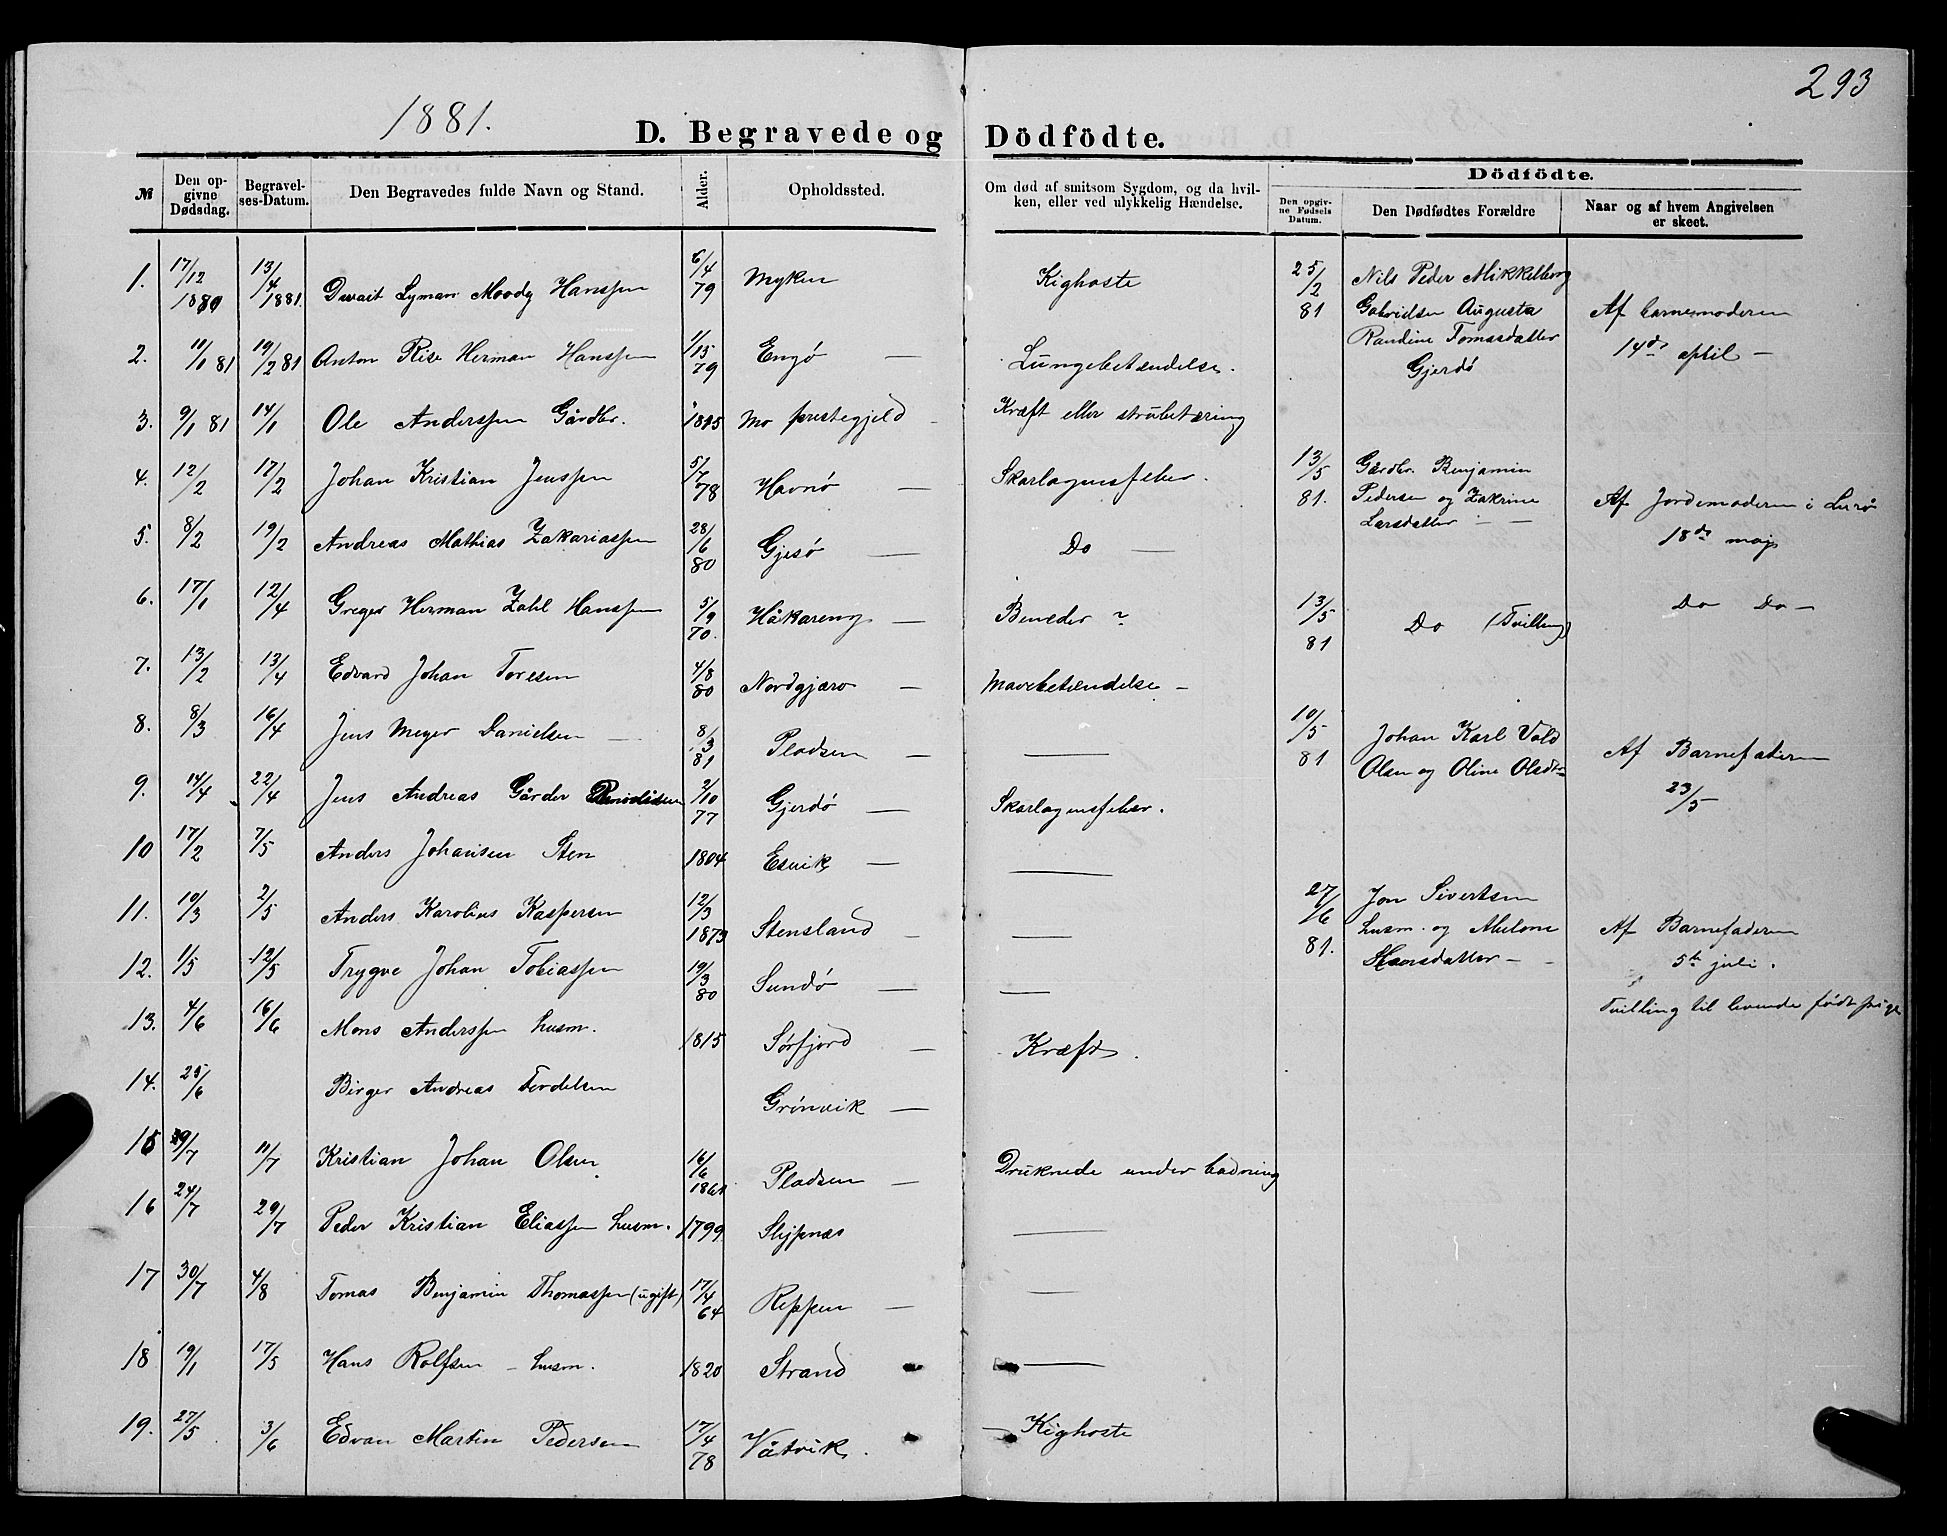 293
1881.
D. Begravede og Dödfödte.
№ | Den opgivne Dødsdag. | Begravelses-Datum. | Den Begravedes fulde Navn og Stand. | Alder. | Opholdssted. | Om død af smitsom Sygdom, og da hvilken, eller ved ulykkelig Hændelse.
1. | 17/12 1880 | 13/4 1881. | Dwait Lyman Moody Hanssen | 6/4 79 | Myken | Kighoste
2. | 10/1 81 | 19/2 81 | Anton Rise Herman Hanssen | 1/15 79 | Engø — | Lungebetændelse.
3. | 9/1 81 | 14/1 | Ole Anderssen Gårdbr. | 1815 | Mo prestegjeld | Kræft eller strubetæring
4. | 12/2 | 17/2 | Johan Kristian Jenssen | 5/7 78 | Havnø — | Skarlagensfeber.
5. | 8/2 | 19/2 | Andreas Mathias Zakariassen | 28/6 80 | Gjesø — | Do —
6. | 17/1 | 12/4 | Greger Herman Zahl Hanssen | 5/9 70. | Håkareng — | Beneder ?
7. | 13/2 | 13/4 | Edvard Johan Toresen | 4/8 80 | Nordgjærø — | Mavebetændelse —
8. | 8/3 | 16/4 | Jens Meyer Danielsen — | 8/3 81 | Pladsen — | —
9. | 14/4 | 22/4 | Jens Andreas Gårder | 2/10 77 | Gjerdø — | Skarlagensfeber.
10 | 17/2 | 7/5 | Anders Johansen Sten | 1804 | Esvik — | —
11. | 10/3 | 2/5 | Anders Karolius Kaspersen | 12/3 1873 | Stensland — | —
12. | 1/5 | 12/5 | Trygve Johan Tobiassen | 19/3 80 | Sundø — | —
13. | 4/6 | 16/6 | Mons Anderssen husm. | 1815 | Sørfjord — | Kræft.
14. | 25/6 | | Birger Andreas Tordelsen | | Grønvik —
15 | 29/7 | 11/7 | Kristian Johan Olsen | 16/6 1861 | Pladsen — | Druknede under badning
16 | 24/7 | 29/7 | Peder Kristian Eliassen husm. | 1799 | Slypnæs | —
17 | 30/7 | 4/8 | Tomas Benjamin Thomassen (ugift) | 17/4 64 | Reppen — | —
18 | 19/1 | 17/5 | Hans Rolfsen — husm. | 1820 | Strand | —
19. | 27/5 | 3/6 | Edvan Martin Pedersen | 17/4 78 | Våtvik. | — Kighoste
Dödfödte.
Den opgivne Fødsels Datum. | Den Dødfødtes Forældre | Naar og af hvem Angivelsen er skeet.
25/2 81 | Nils Peder Mikkelborg
Gabrielsen Augusta | Af barnemoderen
Randine Tomasdatter | 14de april —
Gjerdø
13/5 81. | Gårdbr. Benjamin
Pedersen og Zakrine | Af Jordemoderen i Lurø
Larsdatter — — | 18de maj
13/5 81 | Do (Tvilling) | Do Do —
10/5 81 | Johan Karl Vold | Af Barnefaderen
Olsen og Oline Olsdtr | 23/5
27/6 81. | Jon Sivertsen
husm. og | Af Barnefaderen
Hansdatter — | 5te juli.
Tvilling til levende født pige